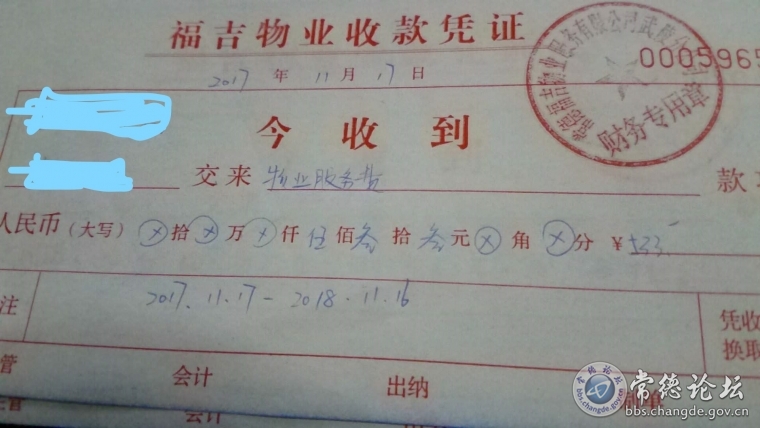 福吉物业收款凭证
2017年11月17日
0005965
常德福吉物业服务有限公司武陵分公司
财务专用章
今收到
交来物业服务费款
人民币(大写)⊗拾⊗万⊗仟伍佰叁拾叁元⊗角⊗分¥533
注 2017.11.17-2018.11.16
凭收
换取
管 会计 出纳
会计
常德论坛
bbs.changde.gov.cn